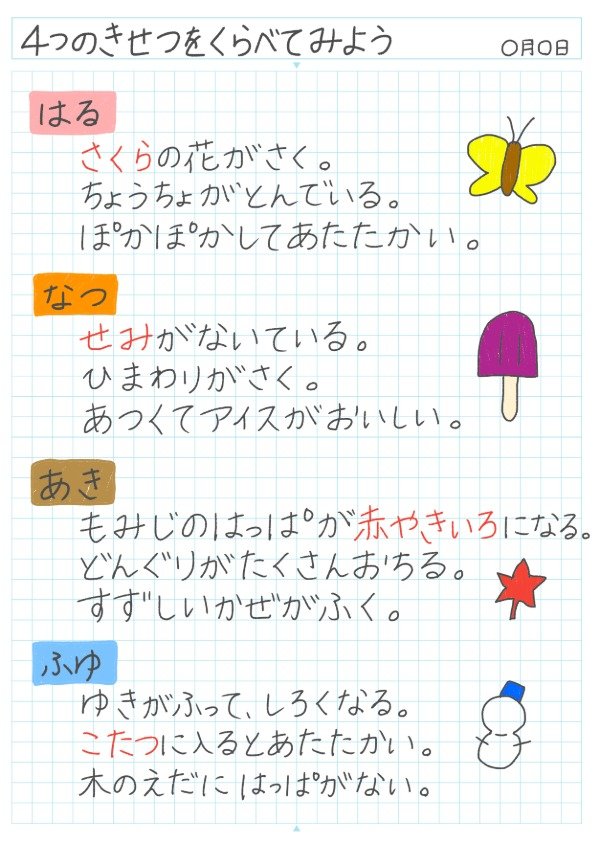 4つのきせつをくらべてみよう
〇月〇日
はる
さくらの花がさく。
ちょうちょがとんでいる。
ぽかぽかしてあたたかい。
なつ
せみがないている。
ひまわりがさく。
あつくてアイスがおいしい。
あき
もみじのはっぱが赤やきいろになる。
どんぐりがたくさんおちる。
すずしいかぜがふく。
ふゆ
ゆきがふって、しろくなる。
こたつに入るとあたたかい。
木のえだにはっぱがない。